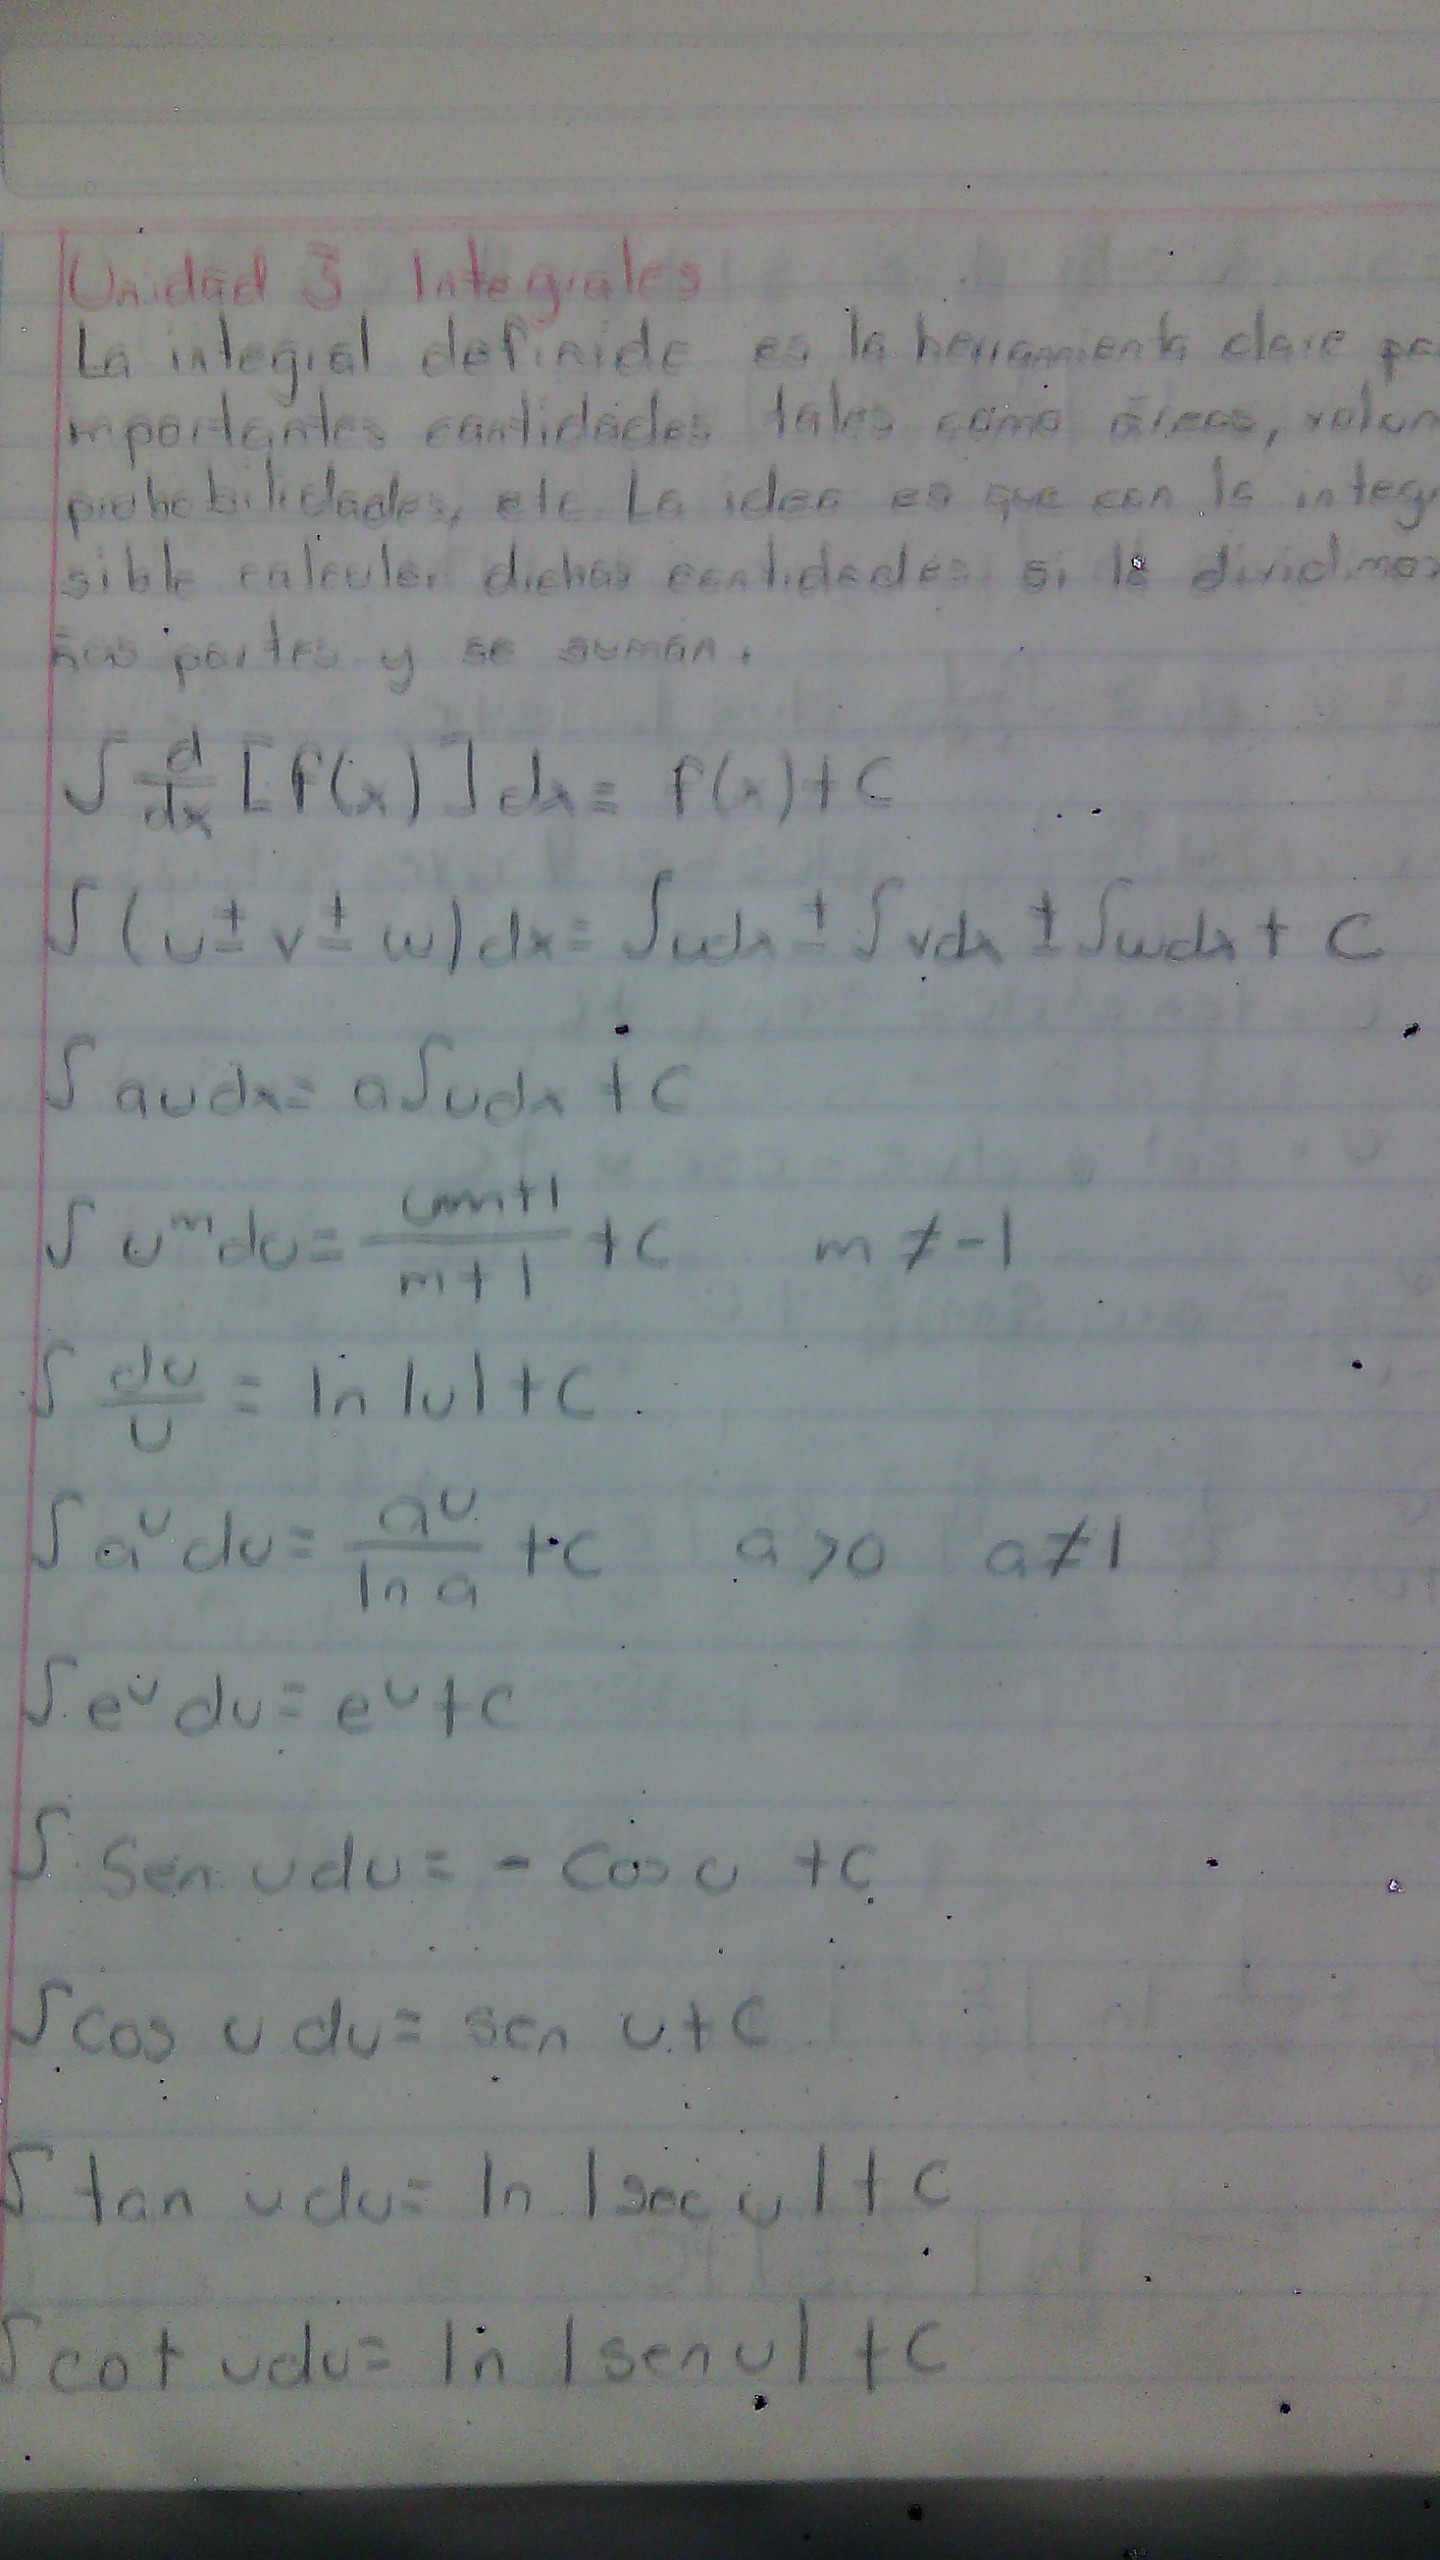 Unidad 3 Integrales
La integral definida es la herramienta clave pa
importantes cantidades tales como áreas, volum
probabilidades, etc La idea es que con la integr
sible calcular dichas cantidades si la dividimos
ñas partes y se suman.
∫ d/dx [f(x)] dx = f(x) + C
∫ (u ± v ± w) dx = ∫udx ± ∫vdx ± ∫wdx + C
∫ audx = a∫udx + C
∫ u^m du = um+1/m+1 + C m ≠ -1
∫ du/u = ln |u| + C
∫ a^u du = a^u/ln a + C a > 0 a ≠ 1
∫ e^u du = e^u + C
∫ Sen u du = - Cos u + C
∫ cos u du = sen u + C
∫ tan u du = ln |sec u| + C
∫ cot u du = ln |sen u| + C